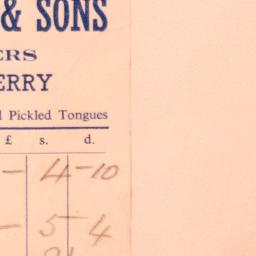 & SONS
ERS
ERRY
Pickled Tongues
£ s. d.
- 4-10
- 5 4